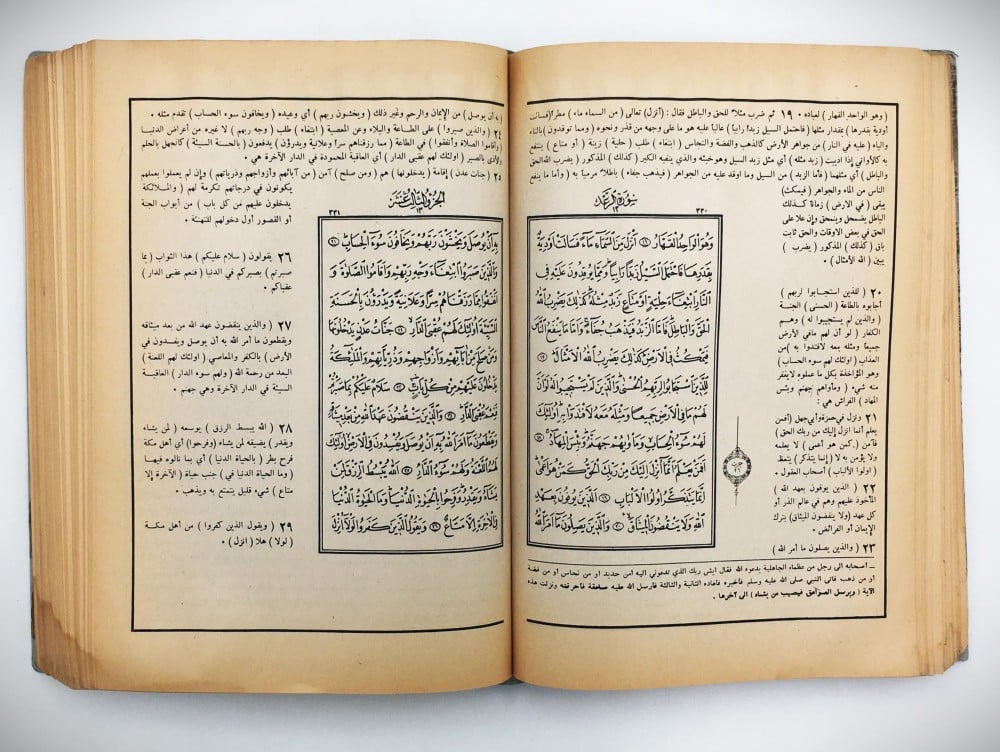 ( وهو الواحد القهار ) لعباده . ١٩ ثم ضرب مثلاً للحق والباطل فقال : (أنزل) تعالى ( من السماء ماء ) مطراً (فسالت
أودية بقدرها ) بمقدار ملئها ( فاحتمل السيل زبداً رابياً) عالياً عليه هو ما على وجهه من قذر ونحوه ( ومما توقدون) بالتاء
والياء ( عليه في النار) من جواهر الأرض كالذهب والفضة والنحاس ( ابتغاء ) طلب ( حلية ) زينة ( أو متاع ) ينتفع
به كالأواني إذا اذيبت ( زبد مثله ) أي مثل زبد السيل وهو خبثه والذي ينفيه الكير ( كذلك ) المذكور ( يضرب الله الحق
والباطل ) أي مثلهما ( فأما الزبد ) من السيل وما اوقد عليه من الجواهر ( فيذهب جفاء ) باطلاً مرمياً به ( وأما ما ينفع
الناس من الماء والجواهر ( فيمكث)
يبقى ( في الارض ) زماناً كذلك
الباطل يضمحل وينمحق وإن علا على
الحق في بعض الاوقات والحق ثابت
باق ( كذلك ) المذكور ( يضرب )
يبين ( الله الأمثال ) .
٢٠ ( للذين استجابوا لربهم )
أجابوه بالطاعة ( الحسنى ) الجنة
( والذين لم يستجيبوا له ) وهم
الكفار ( لو أن لهم ما في الأرض
جميعاً ومثله معه لافتدوا به )من
العذاب ( اولئك لهم سوء الحساب )
وهو المؤاخذة بكل ما عملوه لا يغفر
منه شيء ( ومأواهم جهنم وبئس
المهاد ) الفراش هي :
٢١ ونزل في حمزة وأبي جهل (أفمن
يعلم أنما انزل إليك من ربك الحق )
فآمن ( كمن هو أعمى ) لا يعلمه
ولا يؤمن به لا ( إنما يتذكر ) يتعظ
( اولوا الألباب ) أصحاب العقول .
٢٢ ( الذين يوفون بعهد الله )
المأخوذ عليهم وهم في عالم الذر أو
كل عهد (ولا ينقضون الميثاق) بترك
الإيمان أو الفرائض .
٢٣ ( والذين يصلون ما أمر الله )
سورة الرعد
١٣
٣٣٠
وَهُوَ الْوَاحِدُ الْقَهَّارُ ١٨ أَنْزَلَ مِنَ السَّمَاءِ مَاءً فَسَالَتْ أَوْدِيَةٌ
بِقَدَرِهَا فَاحْتَمَلَ السَّيْلُ زَبَدًا رَابِيًا وَمِمَّا يُوقِدُونَ عَلَيْهِ فِي
النَّارِ ابْتِغَاءَ حِلْيَةٍ أَوْ مَتَاعٍ زَبَدٌ مِثْلُهُ كَذٰلِكَ يَضْرِبُ اللّٰهُ
الْحَقَّ وَالْبَاطِلَ فَأَمَّا الزَّبَدُ فَيَذْهَبُ جُفَاءً وَأَمَّا مَا يَنْفَعُ النَّاسَ
فَيَمْكُثُ فِي الْأَرْضِ كَذٰلِكَ يَضْرِبُ اللّٰهُ الْأَمْثَالَ ١٩
لِلَّذِينَ اسْتَجَابُوا لِرَبِّهِمُ الْحُسْنٰى وَالَّذِينَ لَمْ يَسْتَجِيبُوا لَهُ لَوْ أَنَّ
لَهُمْ مَا فِي الْأَرْضِ جَمِيعًا وَمِثْلَهُ مَعَهُ لَافْتَدَوْا بِهِ أُولٰئِكَ
لَهُمْ سُوءُ الْحِسَابِ وَمَأْوٰيهُمْ جَهَنَّمُ وَبِئْسَ الْمِهَادُ ٢٠
أَفَمَنْ يَعْلَمُ أَنَّمَا أُنْزِلَ إِلَيْكَ مِنْ رَبِّكَ الْحَقُّ كَمَنْ هُوَ أَعْمٰى
إِنَّمَا يَتَذَكَّرُ أُولُوا الْأَلْبَابِ ٢١ الَّذِينَ يُوفُونَ بِعَهْدِ
اللّٰهِ وَلَا يَنْقُضُونَ الْمِيثَاقَ ٢٢ وَالَّذِينَ يَصِلُونَ مَا أَمَرَ اللّٰهُ
ــ أصحابه الى رجل من عظماء الجاهلية يدعوه الله فقال ايش ربك الذي تدعوني اليه أمن حديد او من نحاس أو من فضة
او من ذهب فاتى النبي صلى الله عليه وسلم فأخبره فأعاده الثانية والثالثة فارسل الله عليه صاعقة فاحرقته ونزلت هذه
الآية ( ويرسل الصواعق فيصيب من يشاء ) الى آخرها .
( به أن يوصل ) من الإيمان والرحم وغير ذلك ( ويخشون ربهم ) أي وعيده ( ويخافون سوء الحساب ) تقدم مثله .
٢٤ ( والذين صبروا ) على الطاعة والبلاء وعن المعصية ( ابتغاء ) طلب ( وجه ربهم ) لا غيره من أعراض الدنيا
( وأقاموا الصلاة وأنفقوا ) في الطاعة ( مما رزقناهم سراً وعلانية ويدرؤن ) يدفعون ( بالحسنة السيئة ) كالجهل بالحلم
والأذى بالصبر ( اولئك لهم عقبى الدار ) أي العاقبة المحمودة في الدار الآخرة هي .
٢٥ ( جنات عدن ) إقامة ( يدخلونها ) هم ( ومن صلح ) آمن ( من آبائهم وأزواجهم وذرياتهم ) وإن لم يعملوا بعملهم
يكونون في درجاتهم تكرمة لهم ( والملائكة
يدخلون عليهم من كل باب ) من أبواب الجنة
أو القصور أول دخولهم للتهنئة .
٢٦ يقولون ( سلام عليكم ) هذا الثواب ( بما
صبرتم ) بصبركم في الدنيا ( فنعم عقبى الدار )
عقباكم .
٢٧ ( والذين ينقضون عهد الله من بعد ميثاقه
ويقطعون ما أمر الله به أن يوصل ويفسدون في
الأرض ) بالكفر والمعاصي ( اولئك لهم اللعنة )
البعد من رحمة الله ( ولهم سوء الدار ) العاقبة
السيئة في الدار الآخرة وهي جهنم .
٢٨ ( الله يبسط الرزق ) يوسعه ( لمن يشاء
ويقدر ) يضيقه لمن يشاء (وفرحوا) أي أهل مكة
فرح بطر ( بالحياة الدنيا ) أي بما نالوه فيها
( وما الحياة الدنيا في ) جنب حياة ( الآخرة إلا
متاع ) شيء قليل يتمتع به ويذهب .
٢٩ ( ويقول الذين كفروا ) من أهل مكة
( لولا ) هلا ( انزل ) .
الجزء الثالث عشر
١٣
٣٣١
بِهِ أَنْ يُوصَلَ وَيَخْشَوْنَ رَبَّهُمْ وَيَخَافُونَ سُوءَ الْحِسَابِ ٢٣
وَالَّذِينَ صَبَرُوا ابْتِغَاءَ وَجْهِ رَبِّهِمْ وَأَقَامُوا الصَّلٰوةَ وَ
أَنْفَقُوا مِمَّا رَزَقْنَاهُمْ سِرًّا وَعَلَانِيَةً وَيَدْرَؤُنَ بِالْحَسَنَةِ
السَّيِّئَةَ أُولٰئِكَ لَهُمْ عُقْبَى الدَّارِ ٢٤ جَنَّاتُ عَدْنٍ يَدْخُلُونَهَا
وَمَنْ صَلَحَ مِنْ اٰبَائِهِمْ وَأَزْوَاجِهِمْ وَذُرِّيَّاتِهِمْ وَالْمَلٰئِكَةُ
يَدْخُلُونَ عَلَيْهِمْ مِنْ كُلِّ بَابٍ ٢٥ سَلَامٌ عَلَيْكُمْ بِمَا صَبَرْتُمْ
فَنِعْمَ عُقْبَى الدَّارِ ٢٦ وَالَّذِينَ يَنْقُضُونَ عَهْدَ اللّٰهِ مِنْ بَعْدِ مِيثَاقِهِ
وَيَقْطَعُونَ مَا أَمَرَ اللّٰهُ بِهِ أَنْ يُوصَلَ وَيُفْسِدُونَ فِي الْأَرْضِ أُولٰئِكَ
لَهُمُ اللَّعْنَةُ وَلَهُمْ سُوءُ الدَّارِ ٢٧ اللّٰهُ يَبْسُطُ الرِّزْقَ لِمَنْ
يَشَاءُ وَيَقْدِرُ وَفَرِحُوا بِالْحَيٰوةِ الدُّنْيَا وَمَا الْحَيٰوةُ الدُّنْيَا
فِي الْاٰخِرَةِ إِلَّا مَتَاعٌ ٢٨ وَيَقُولُ الَّذِينَ كَفَرُوا لَوْلَا أُنْزِلَ